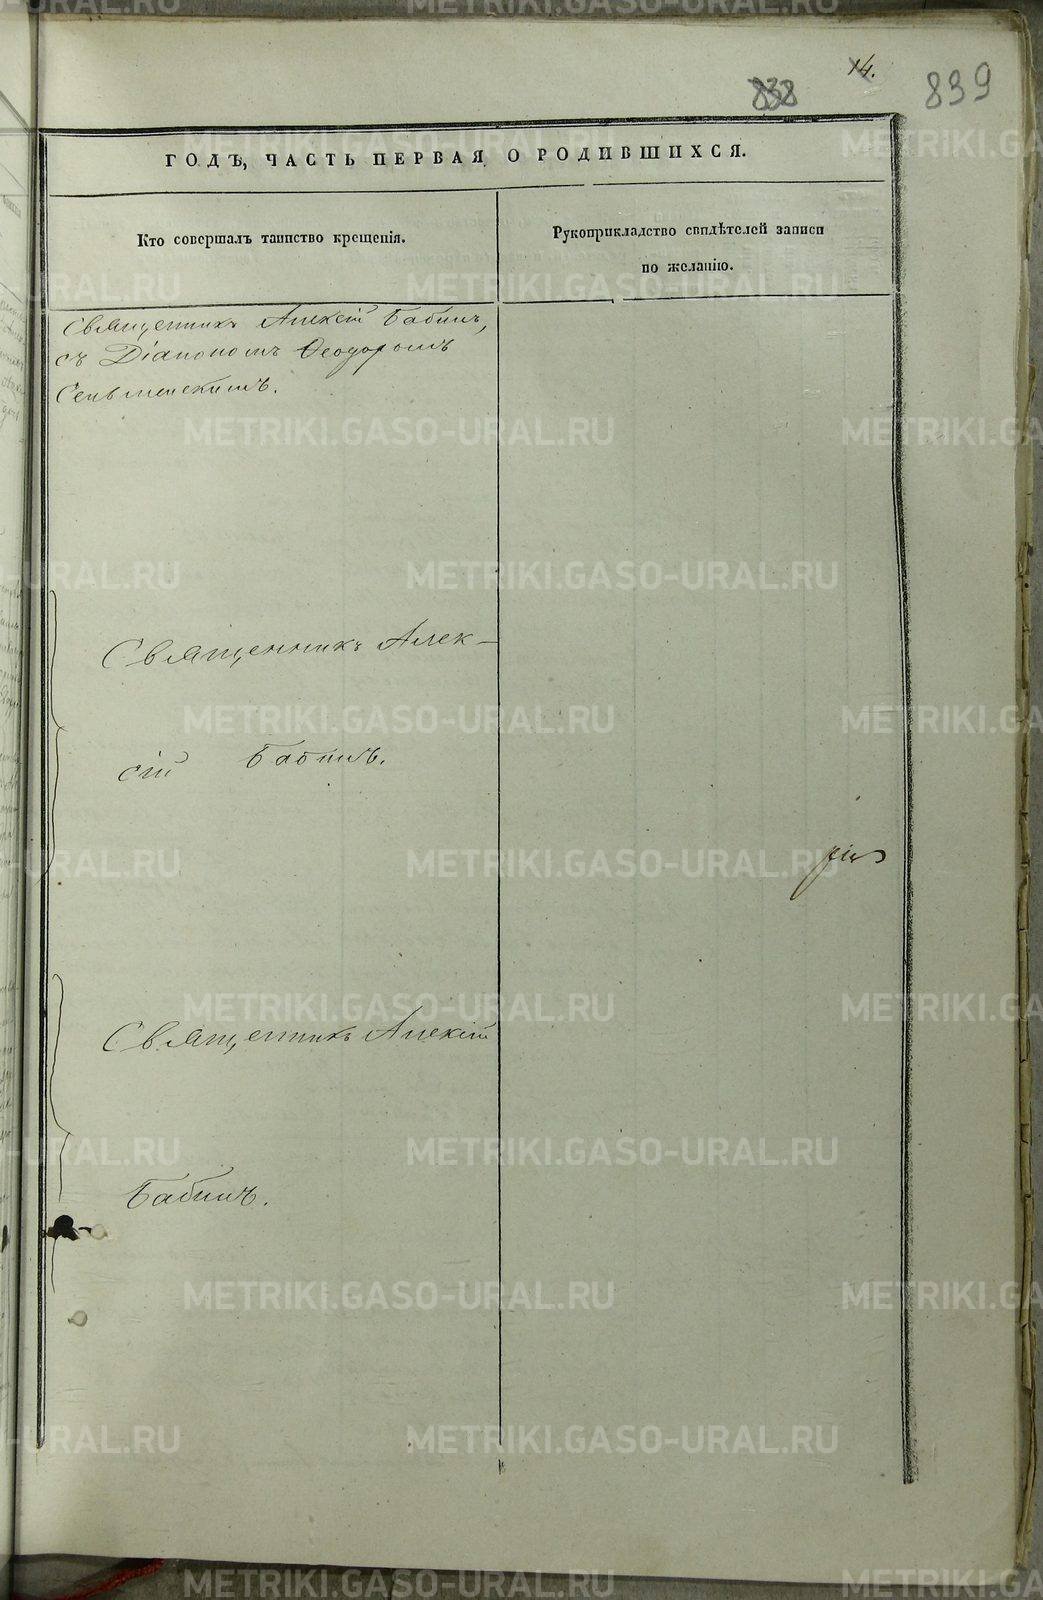 14.
838
839
ГОДЪ, ЧАСТЬ ПЕРВАЯ, О РОДИВШИХСЯ.
Кто совершалъ таинство крещенія.
Рукоприкладство свидѣтелей записи
по желанію.
Священникъ Алексій Бабинъ,
съ Діакономъ Ѳеодоромъ
Священникъ Алек-
сій Бабинъ.
Священникъ Алексій
Бабинъ.
METRIKI.GASO-URAL.RU